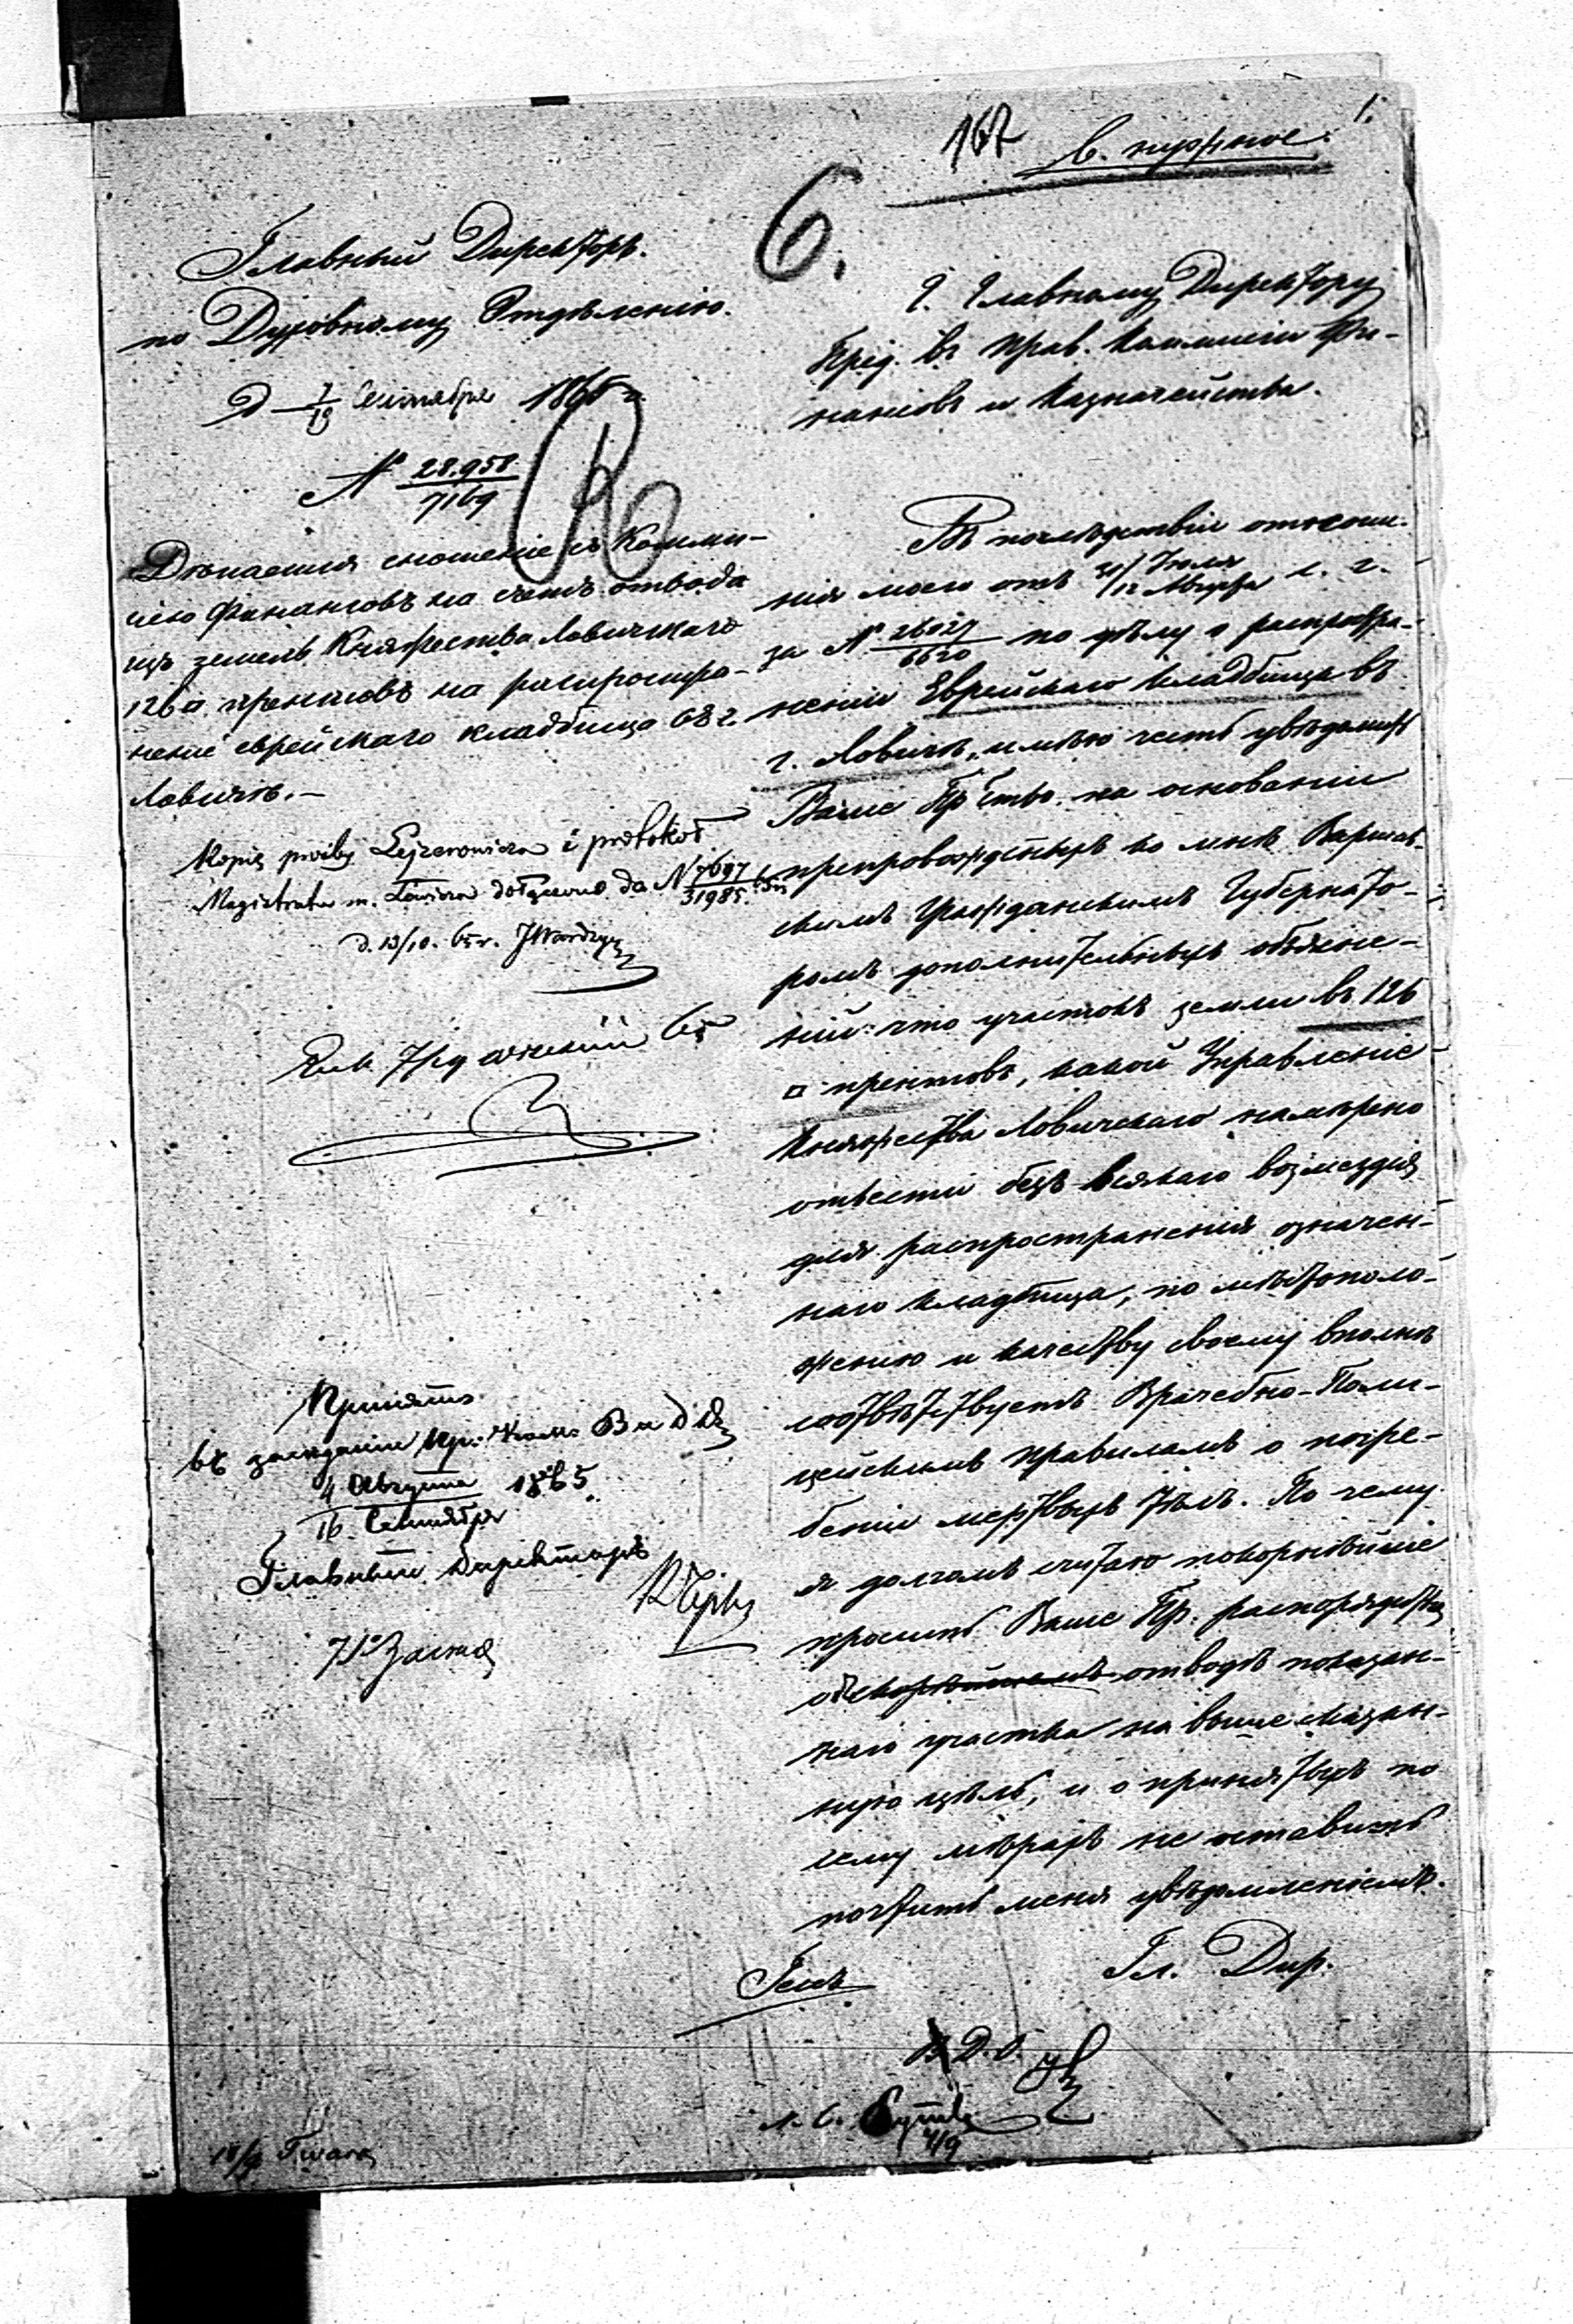 167 в. нужное.
1.
6.
Главный Директоръ
по Духовному Отдѣленію.
Д 7/19 Сентября 1865 г.
№ 28.958/7169
Дѣлается сношеніе съ Коммис-
сіею Финансовъ на счетъ отвода
изъ земель Княжества Ловичскаго
126 □ прентовъ на распростра-
неніе еврейскаго кладбища въ г.
Ловичѣ.—
Kopię prośby Lejzerowicza i protokół
Magistratu m. Łowicza dołączono do N 7697/31985
d. 13/10. 65 r.
65
Принято
въ засѣданіи Пр. Комм. В и Д Д
4 Августа
16 Сентября 1865
Главный Директоръ
Г. Главному Директору
Пред. въ Прав. Коммисіи Фи-
нансовъ и Казначейства.
Въ послѣдствіе отноше-
нія моего отъ 31 Іюля/12 Августа с. г.
за № 26027/6620 по дѣлу о распростра-
неніи Еврейскаго кладбища въ
г. Ловичѣ, имѣю честь увѣдомить
Ваше Пр-ство. на основаніи
препровожденныхъ ко мнѣ Варшав-
скимъ Гражданскимъ Губернато-
ромъ дополнительныхъ объясне-
ній: что участокъ земли въ 126
□ прентовъ, какой Управленіе
Княжества Ловичскаго намѣрено
отвести безъ всякаго возмездія
для распространенія означен-
наго кладбища, по мѣстополо-
женію и качеству своему вполнѣ
соотвѣтствуетъ Врачебно-Поли-
цейскимъ правиламъ о погре-
беніи мертвыхъ тѣлъ. По чему
я долгомъ считаю покорнѣйше
просить Ваше Пр. распорядиться
объ скорѣйшемъ отводѣ показан-
наго участка на выше сказан-
ную цѣль, и о принятыхъ по
сему мѣрахъ не оставить
почтить меня увѣдомленіемъ.
Гл. Дир.
Д. О.
4/9
18/9